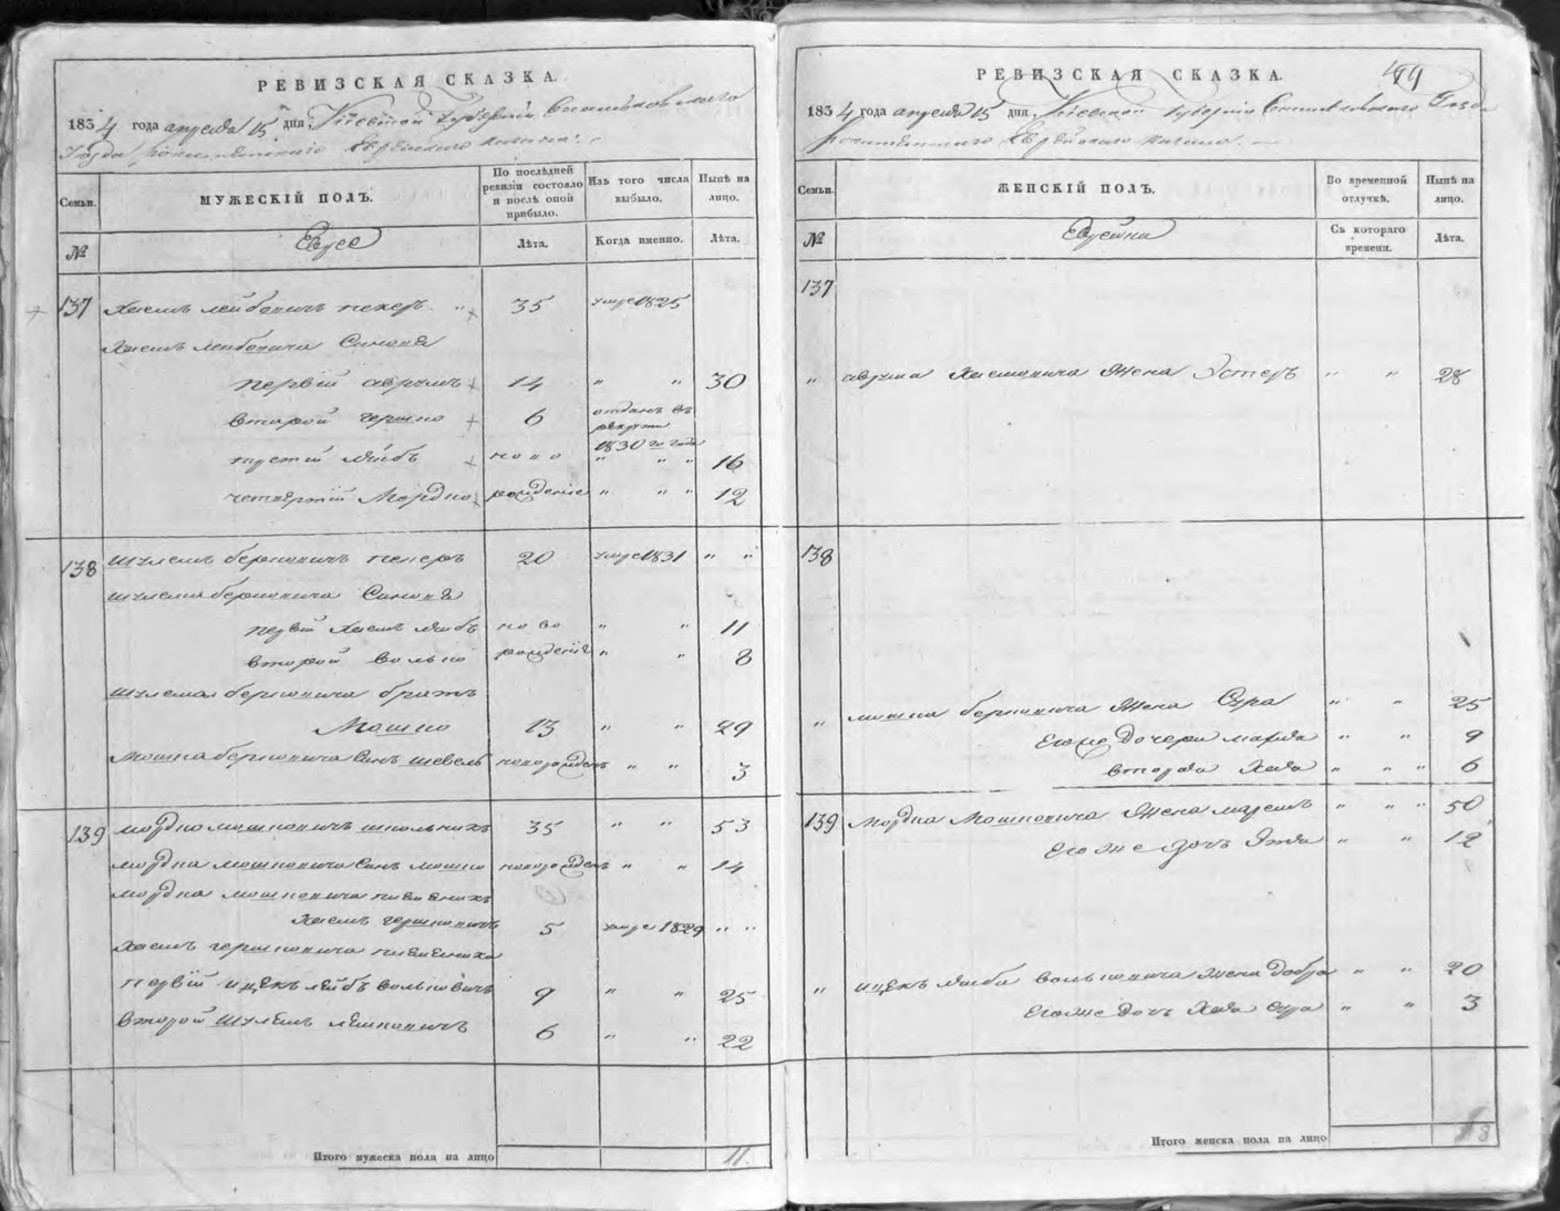 РЕВИЗСКАЯ СКАЗКА.
1834 года апреля 15 дня, Киевской губернии Васильковскаго
Уезда рокитянского Еврейского кагала.
Семьи.
МУЖЕСКІЙ ПОЛЪ.
По послѣдней ревизіи состояло и послѣ оной прибыло.
Изъ того числа выбыло.
Нынѣ на лицо.
№
Евреe
Лѣта.
Когда именно.
Лѣта.
137 Хаемъ лейбовичъ пекеръ " 35 умре 1825
Хаемъ лейбовича Синовя
первій аврумъ 14 " " 30
второй гершко 6 отданъ въ рекруты 1830 го года
третій лейбъ ново " " " 16
четвертій Мордко рожденіе " " " 12
138 шулемъ берковичъ пекеръ 20 умре 1831 " "
шулема берковича Синовя
первій хаемъ лейбъ ново " " 11
второй волько рожденіе " " 8
шулема берковича братъ
Мошко 13 " " 29
Мошка берковича Синъ шевель новорожденъ " " 3
139 мордко мошковичъ школьникъ 35 " " 53
мордка мошковича Синъ мошко новорожденъ " " 14
мордка мошковича племеникъ
хаемъ гершковичъ 5 умре 1829 " "
хаемъ гершковича племеника
первій ицекъ лейбъ вольковичъ 9 " " 25
второй шулемъ лешковичъ 6 " " 22
Итого мужеска пола на лицо 11.
РЕВИЗСКАЯ СКАЗКА.
1834 года апреля 15 дня, Киевской губерніи Васильковского Уезда
рокитянского Еврейского кагала.
Семьи.
ЖЕНСКІЙ ПОЛЪ.
Во временной отлучкѣ.
Нынѣ на лицо.
№
Еврейки
Съ котораго времени.
Лѣта.
137
" аврума Хаемовича Жена Эстеръ " " 28
138
" мошка берковича Жена Сура " " 25
Его же Дочери марья " " 9
вторая Хая " " " 6
139 Мордка Мошковича Жена маремъ " " " 50
Его же дочъ Эта " " 12
" ицекъ лейба вольковича жена добра " " 20
Его же дочъ Хая Сура " " 3
Итого женска пола на лицо 8